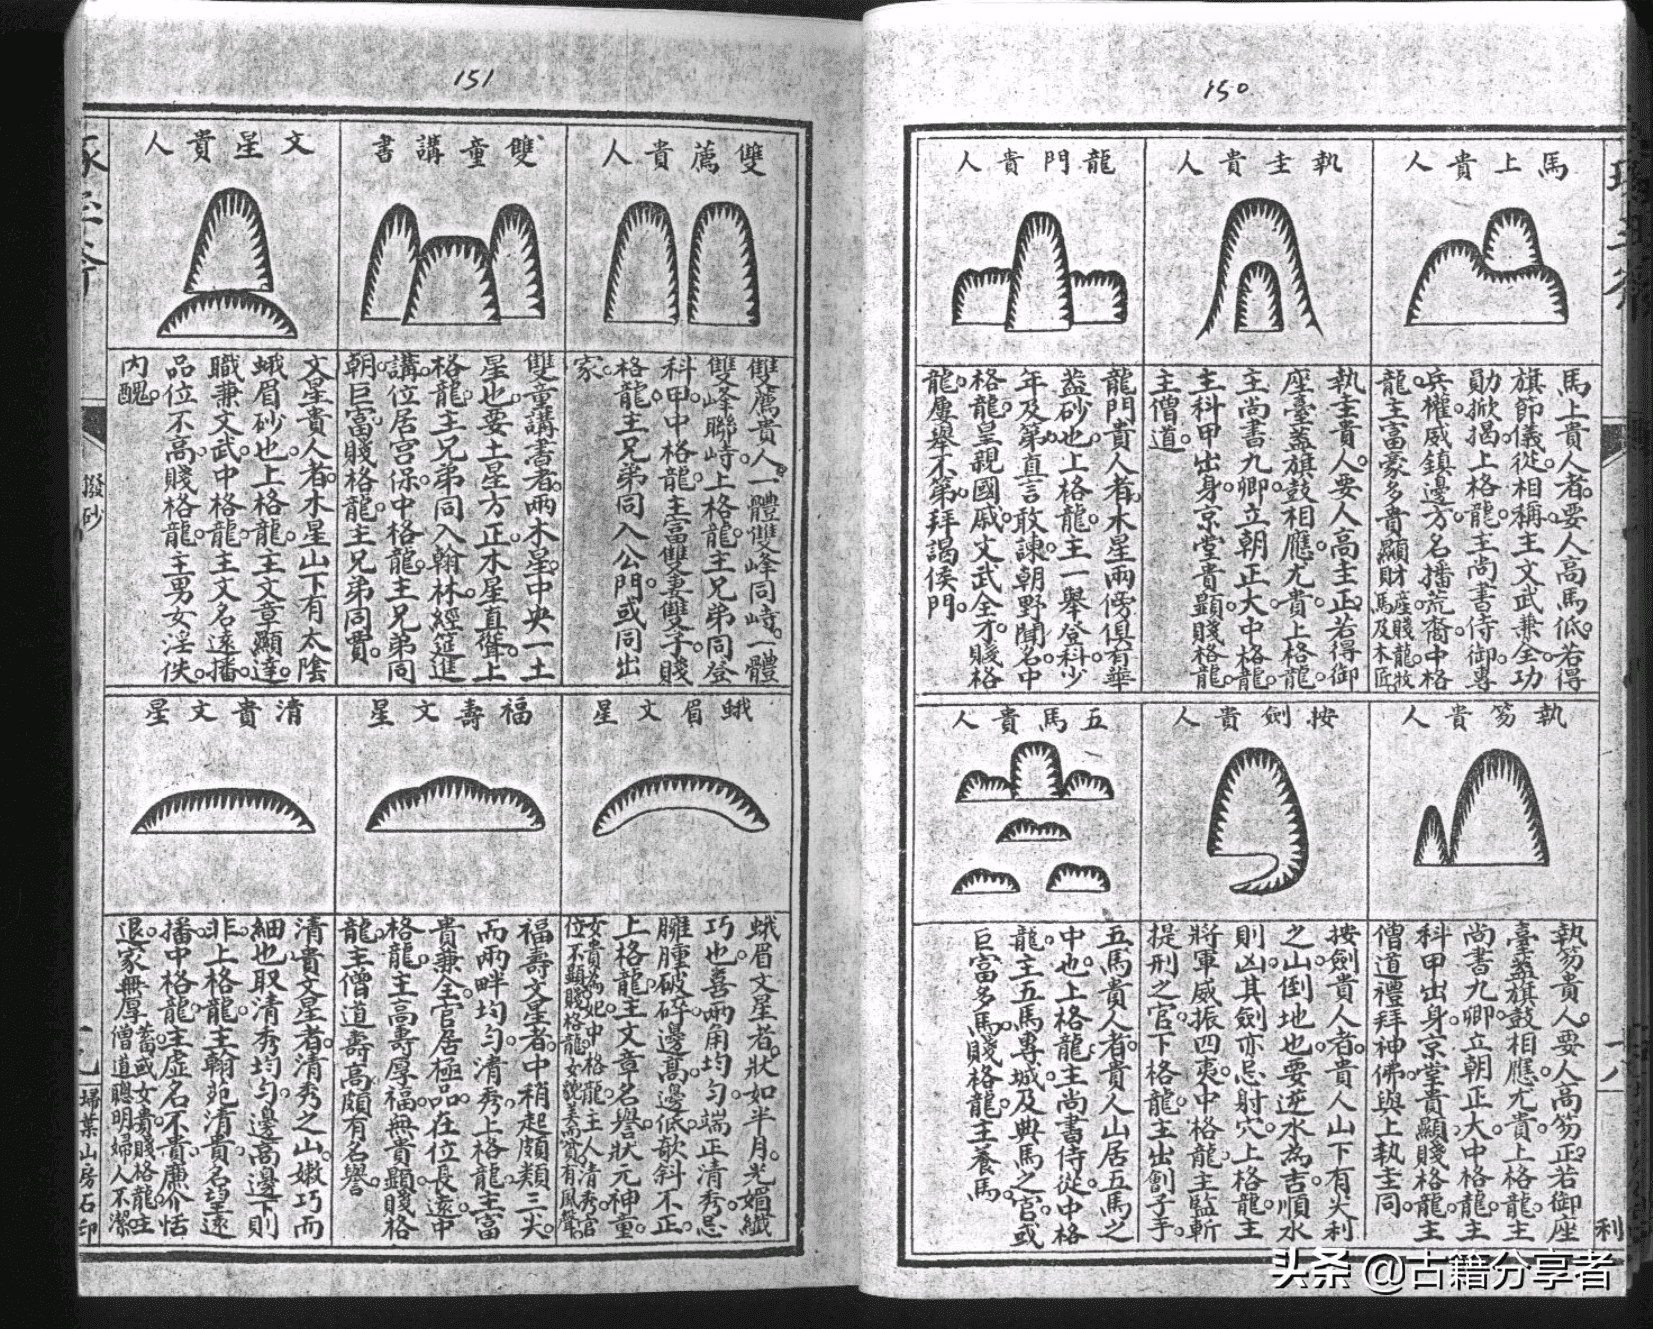 150
馬上貴人
馬上貴人者要人高馬低若得
旗節儀從相稱主文武兼全功
勛掀揭上格龍主尚書侍御專
兵權威鎮邊方名播荒裔中格
龍主富豪多貴顯財產賤龍牧
馬及木匠
執圭貴人
執圭貴人要人高圭正若得御
座臺蓋旗鼓相應尤貴上格龍
主尚書九卿立朝正大中格龍
主科甲出身京堂貴顯賤格龍
主僧道
龍門貴人
龍門貴人者木星兩傍俱有華
蓋砂也上格龍主一舉登科少
年及第真言敢諫朝野聞名中
格龍皇親國戚文武全才賤格
龍屢舉不第拜謁侯門
執笏貴人
執笏貴人要人高笏正若御座
臺蓋旗鼓相應尤貴上格龍主
尚書九卿立朝正大中格龍主
科甲出身京堂貴顯賤格龍主
僧道禮拜神佛與上執圭同
按劍貴人
按劍貴人者貴人山下有尖利
之山倒地也要逆水為吉順水
則凶其劍亦忌射穴上格龍主
將軍威振四夷中格龍主監斬
提刑之官下格龍主出劊子手
五馬貴人
五馬貴人者貴人山居五馬之
中也上格龍主尚書侍從中格
龍主五馬專城及典馬之官或
巨富多馬賤格龍主養馬
利
151
雙薦貴人
雙薦貴人一體雙峰同峙一體
雙峰聯峙上格龍主兄弟同登
科甲中格龍主富雙妻雙子賤
格龍主兄弟同入公門或同出
家
雙童講書
雙童講書者兩木星中央一土
星也要土星方正木星直聳上
格龍主兄弟同入翰林經筵進
講位居宮保中格龍主兄弟同
朝巨富賤格龍主兄弟同賈
文星貴人
文星貴人者木星山下有太陰
蛾眉砂也上格龍主文章顯達
職兼文武中格龍主文名遠播
品位不高賤格龍主男女淫佚
內醜
蛾眉文星
蛾眉文星者狀如半月光媚纖
巧也喜兩角均勻端正清秀忌
臃腫破碎邊高邊低欹斜不正
上格龍主文章名譽狀元神童
女貴為妃中格龍主人清秀官
位不顯賤格龍女貌美而貧有風聲
福壽文星
福壽文星者中稍起頗類三尖
而兩畔均勻清秀上格龍主富
貴兼全官居極品在位長遠中
格龍主高壽厚福無貴顯賤格
龍主僧道壽高頗有名譽
清貴文星
清貴文星者清秀之山嫩巧而
細也取清秀均勻邊高邊下則
非上格龍主翰苑清貴名望遠
播中格龍主虛名不貴廉介恬
退家無厚蓄或女貴賤格龍主
僧道聰明婦人不潔
撥砂
掃葉山房石印
头条 @古籍分享者